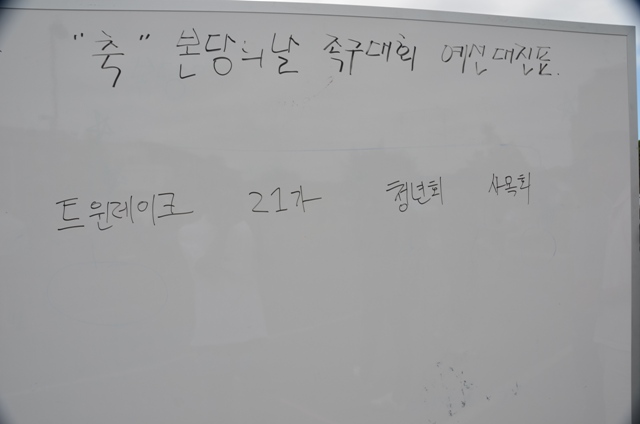 "축" 본당의날 족구대회 예선대진표.
트윈레이크 21가 청년회 사목회